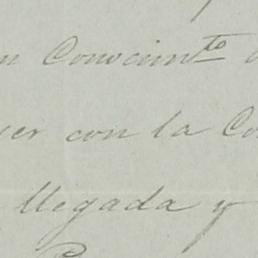 n Conocim.to
er con la Co
llegada y